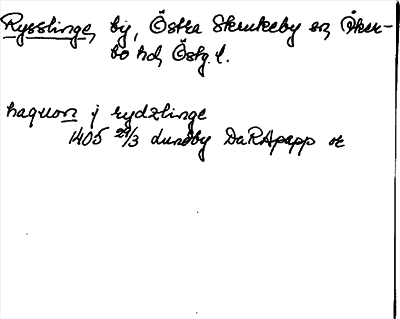 Rysslinge, by, Östra Skrukeby sn, Åker-
bo hd, Östg. l.
haquon j rydzlinge
1405 29/3 lundby DaRApapp or